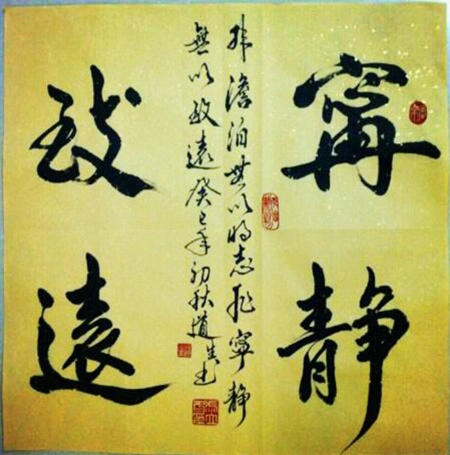 寧静
非澹泊無以明志非寧静
無以致遠癸巳年初秋道生书
致遠